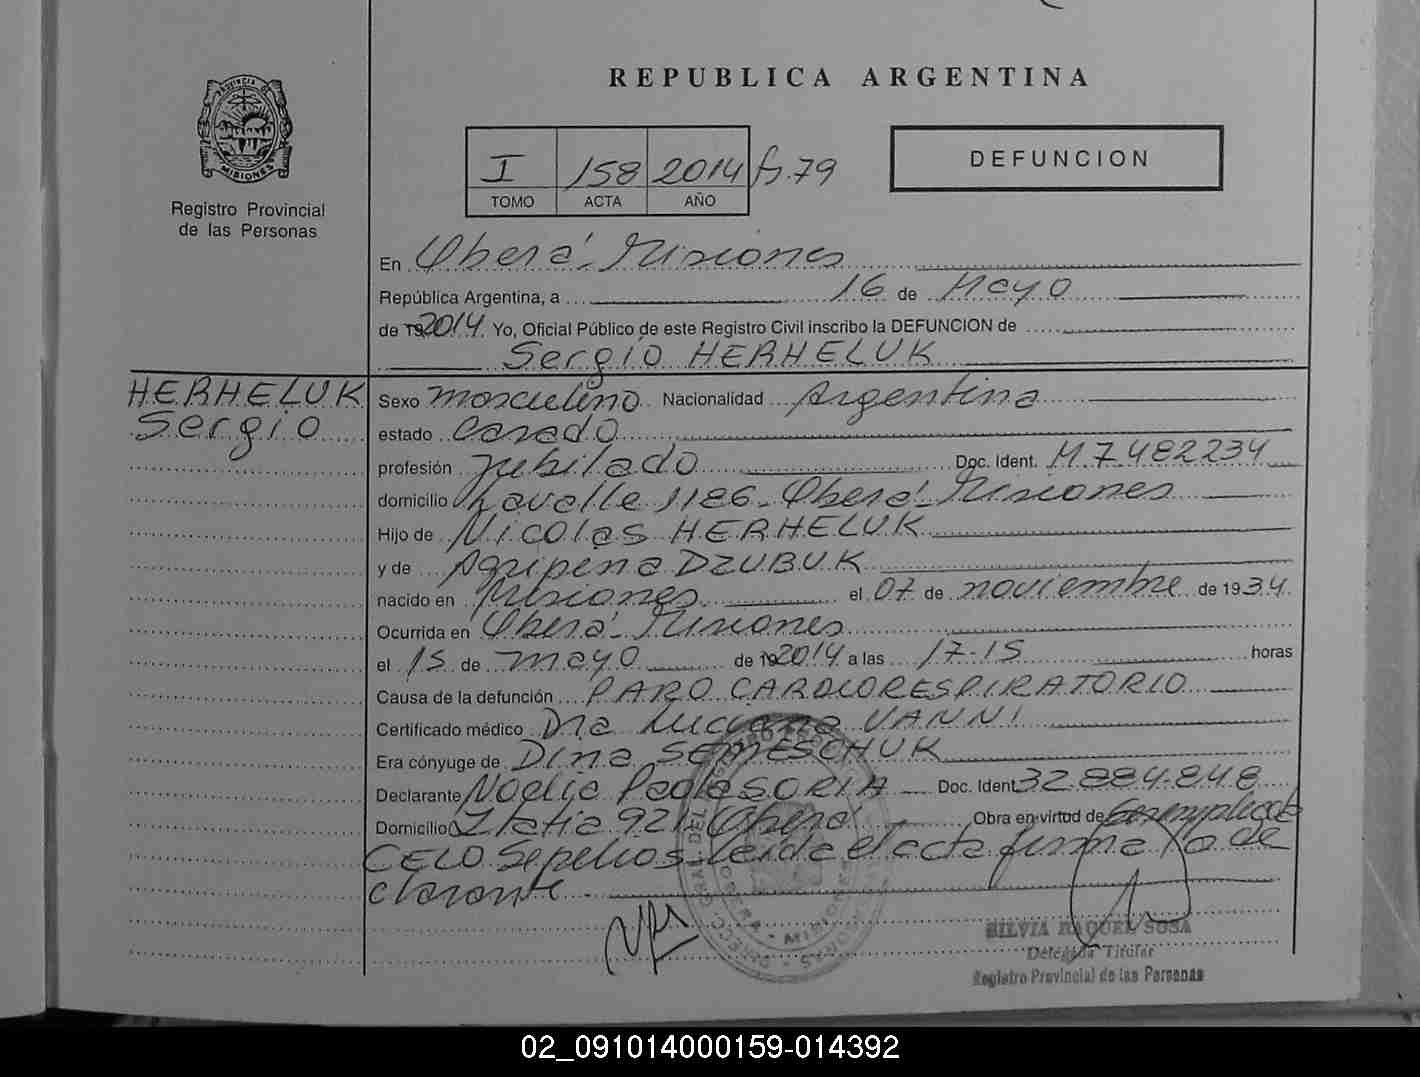 REPUBLICA ARGENTINA
PROVINCIA DE
MISIONES
Registro Provincial
de las Personas
I 158 2014 fs. 79
TOMO ACTA AÑO
DEFUNCION
En Oberá - Misiones
República Argentina, a 16 de Mayo
de 192014 Yo, Oficial Público de este Registro Civil inscribo la DEFUNCION de
Sergio HERHELUK
HERHELUK
Sergio
Sexo masculino Nacionalidad Argentina
estado Casado
profesión Jubilado Doc. Ident. M 7482234
domicilio Lavalle 1186 - Oberá - Misiones
Hijo de Nicolas HERHELUK
y de Agripena DZUBUK
nacido en Misiones el 07 de noviembre de 1934
Ocurrida en Oberá - Misiones
el 15 de mayo de 192014 a las 17-15 horas
Causa de la defunción PARO CARDIORESPIRATORIO
Certificado médico Dra Luciana VANNI
Era cónyuge de Dina SEMESCHUK
Declarante Noelia Paola SORIA Doc. Ident 32.884.848
Domicilio Itatia 921 - Oberá Obra en virtud de Ser empleada
CELO Sepelios - leida el acta firma la de
clarante
SILVIA RAQUEL SOSA
Delegada Titular
Registro Provincial de las Personas
02_091014000159-014392